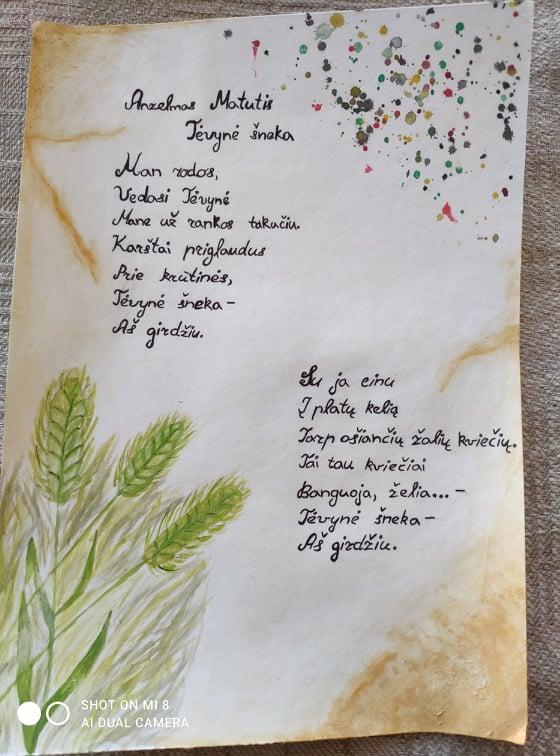 Anzelmas Matutis
Tėvynė šneka
Man rodos,
Vedasi Tėvynė
Mane už rankos takučiu.
Karštai priglaudus
Prie krūtinės,
Tėvynė šneka –
Aš girdžiu.
Su ja einu
Į platų kelią
Tarp ošiančių žalių kviečių.
Tai tau kviečiai
Banguoja, želia... –
Tėvynė šneka –
Aš girdžiu.
SHOT ON MI 8
AI DUAL CAMERA